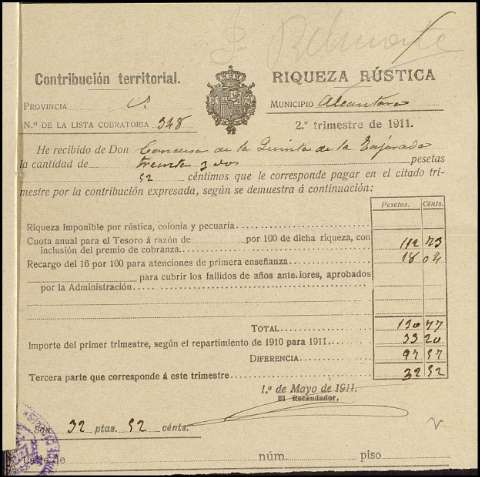 J. Belmonte
Contribución territorial.
RIQUEZA RÚSTICA
PROVINCIA
MUNICIPIO Alcantara
N.º DE LA LISTA COBRATORIA 348
2.º trimestre de 1911.
He recibido de Don Condesa de la Quinta de la Enjarada
la cantidad de treinta y dos pesetas
52 céntimos que le corresponde pagar en el citado tri-
mestre por la contribución expresada, según se demuestra á continuación:
Pesetas. Cénts.
Riqueza imponible por rústica, colonia y pecuaria
Cuota anual para el Tesoro á razón de por 100 de dicha riqueza, con
inclusión del premio de cobranza 112 73
Recargo del 16 por 100 para atenciones de primera enseñanza 18 04
para cubrir los fallidos de años anteriores, aprobados
por la Administración
TOTAL 130 77
Importe del primer trimestre, según el repartimiento de 1910 para 1911 33 20
DIFERENCIA 97 57
Tercera parte que corresponde á este trimestre 32 52
1.º de Mayo de 1911.
El Recaudador,
32 ptas. 52 cénts.
núm. piso